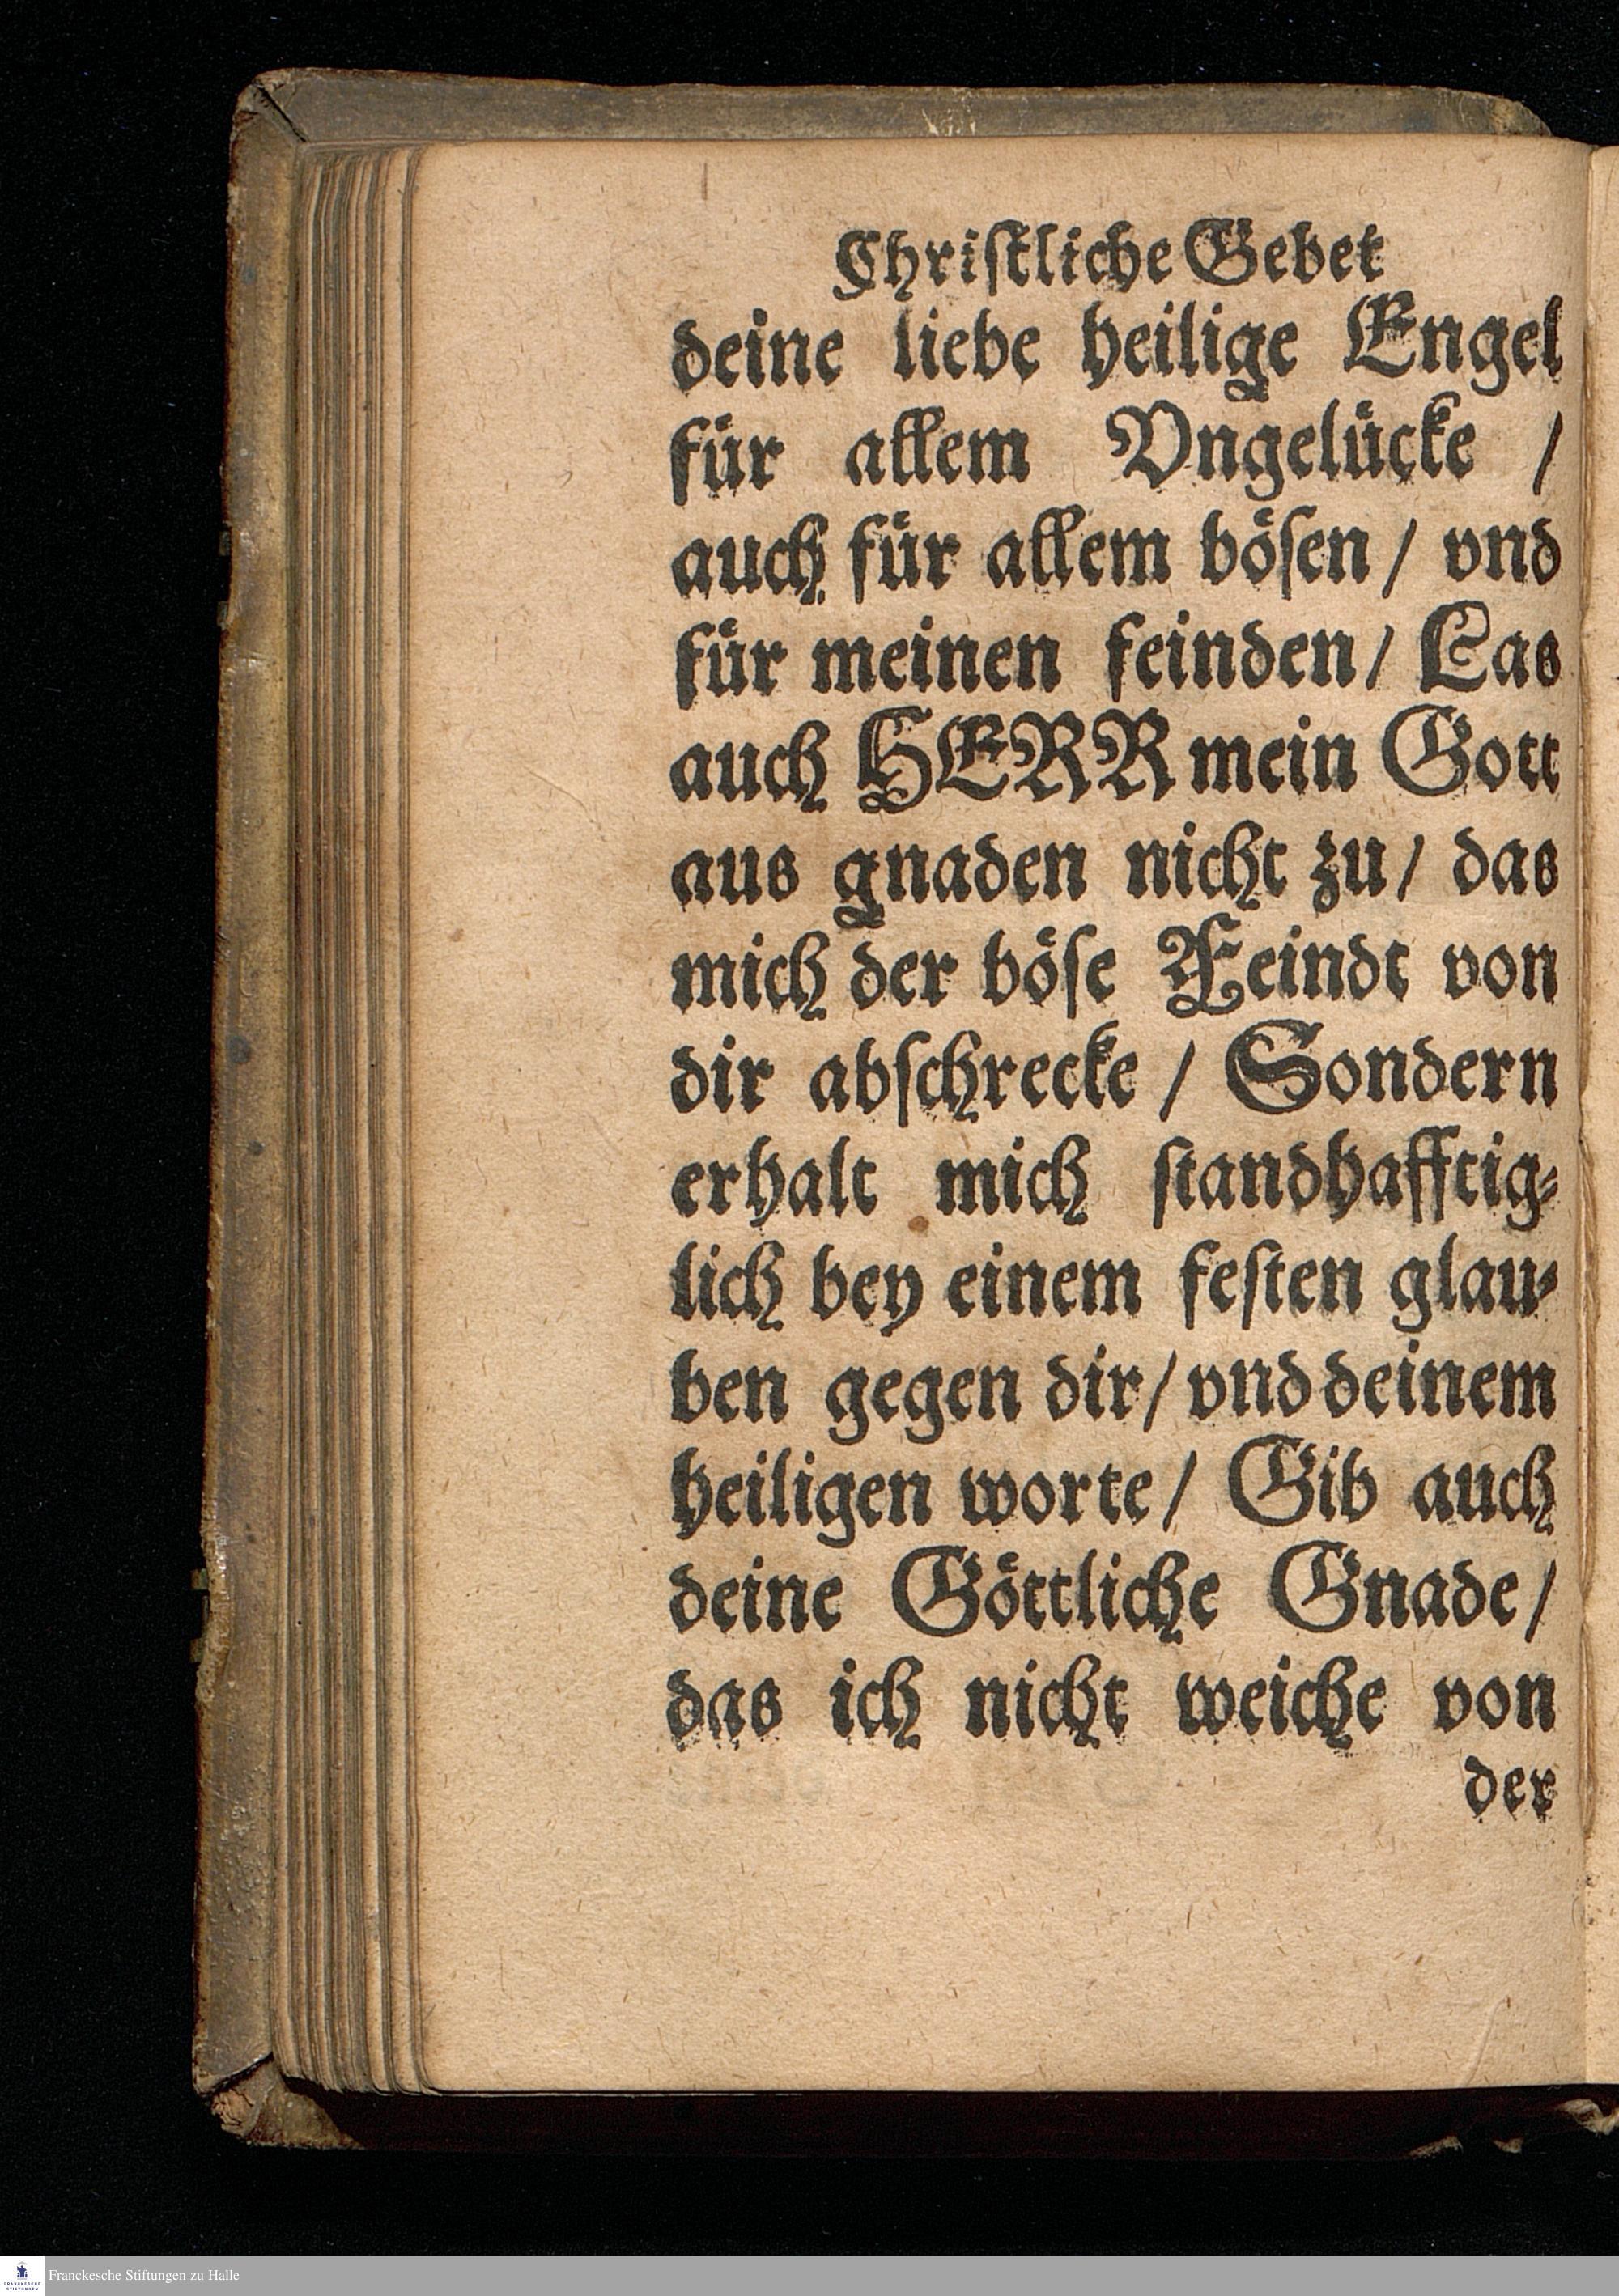 Chriſtliche Gebet
deine liebe heilige Engel
fuͤr allem Vngeluͤcke /
auch fuͤr allem boͤſen / vnd
fuͤr meinen feinden / Las
auch HERR mein Gott
aus gnaden nicht zu / das
mich der boͤſe Feindt von
dir abſchrecke / Sondern
erhalt mich ſtandhafftig⸗
lich bey einem feſten glau⸗
ben gegen dir / vnd deinem
heiligen worte / Gib auch
deine Goͤttliche Gnade /
das ich nicht weiche von
der
FRANCKESCHE
STIFTUNGEN
Franckesche Stiftungen zu Halle